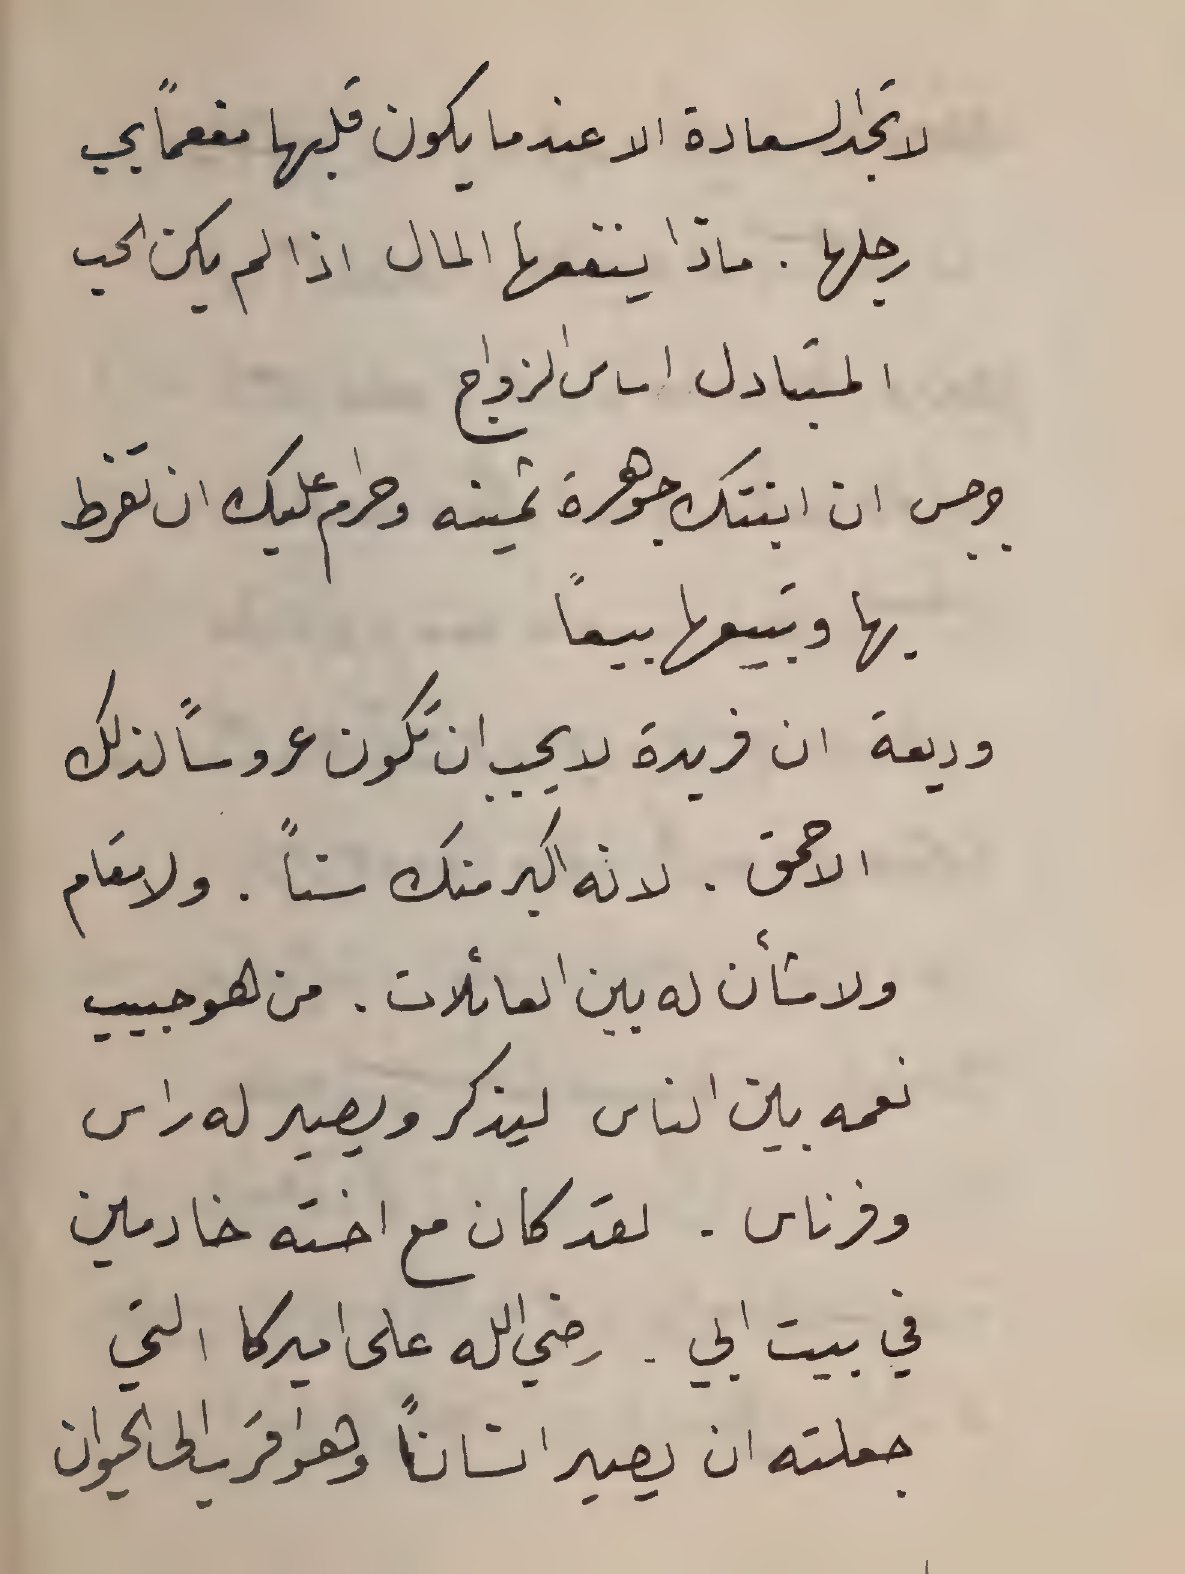 لا تجد السعادة الا عندما يكون قلبها مفعماً بحب
رجلها . ماذا ينفعها المال اذا لم يكن الحب
المتبادل اساس الزواج
جرجس ان ابنتك جوهرة ثمينه وحرام عليك ان تفرط
بها وتبيعها بيعاً
وديعة ان فريدة لا يجب ان تكون عروساً لذلك
الاحمق . لانه اكبر منك سناً . ولا مقام
ولا شأن له بين العائلات . من هو حبيب
نعمه بين الناس ليذكر ويصير له راس
وفرناس . لقد كان مع اخته خادمين
في بيت ابي . رضي الله على اميركا التي
جعلته ان يصير انساناً وهو اقرب الى الحيوان